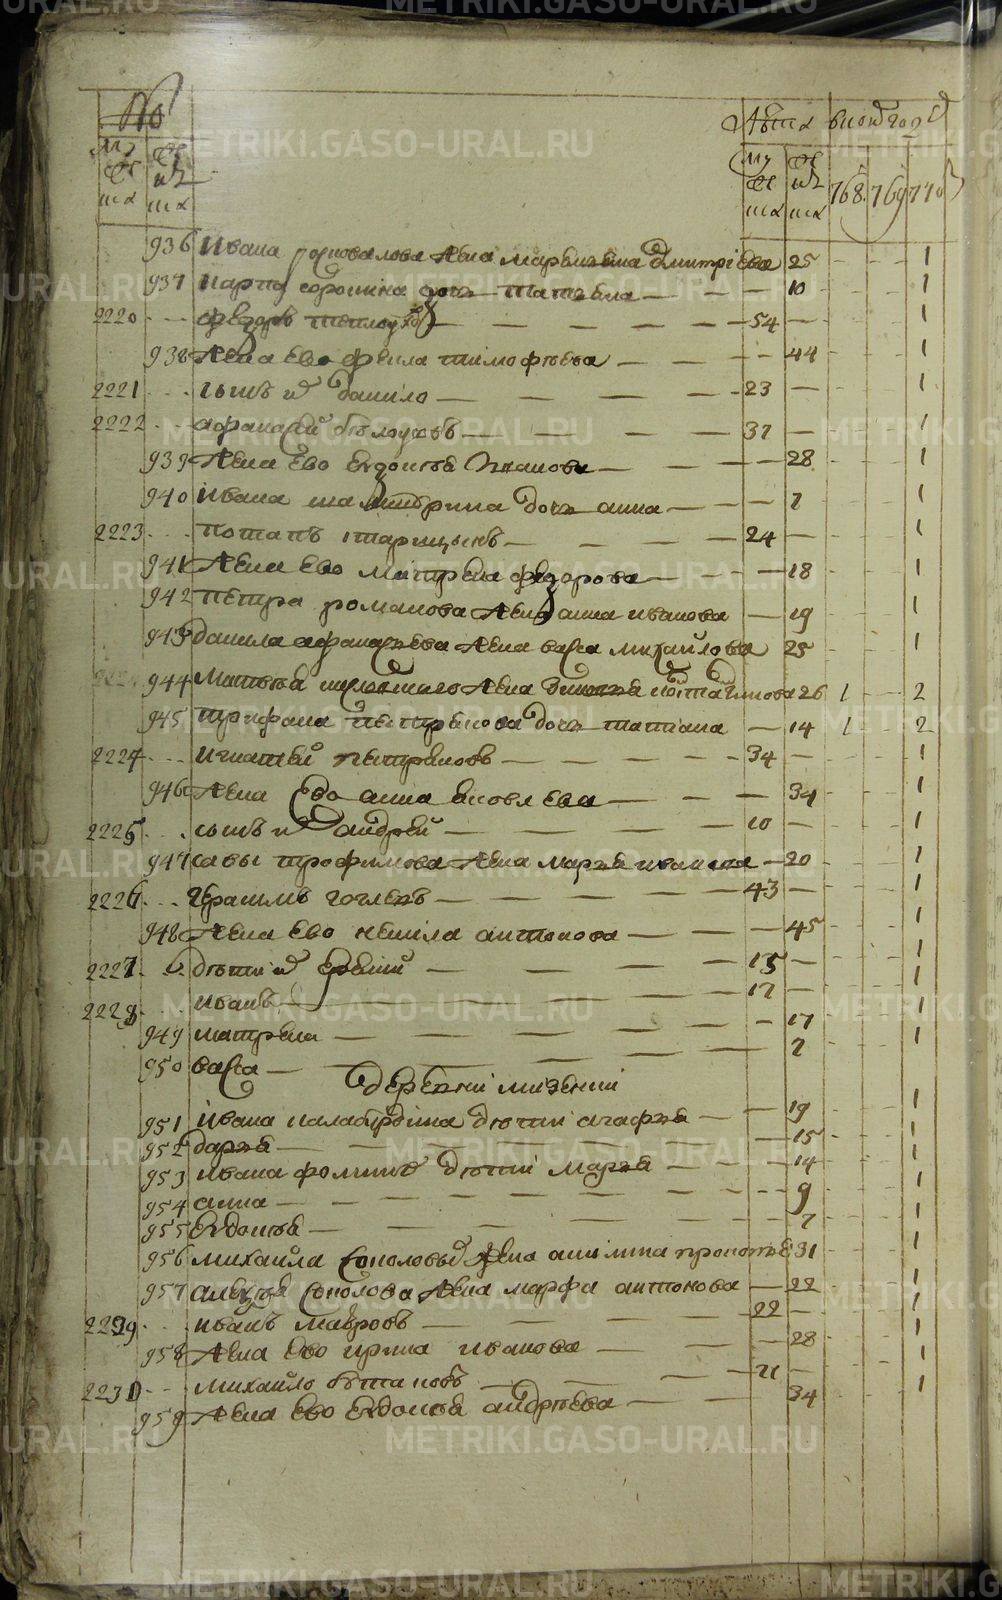 №
Лѣта
768 769 770
936 Ивана жена Марья Дмитриева 25 1
937 Карпа сорокина дочь татьяна 10 1
2220 федоръ 54 1
938 жена ево фекла тимофѣева 44 1
2221 сынъ ихъ данило 23 1
2222 афанасей бѣлоусовъ 37 1
939 жена ево Евдокья Иванова 28 1
940 Ивана дочь анна 7 1
2223 потапъ старицынъ 24 1
941 жена ево матрена федорова 18 1
942 петра романова жена анна иванова 19 1
943 данила афанасьева жена васса михайлова 25 1
944 Матвея жена 26 1 2
945 трифана петракова дочь татиана 14 1 2
2224 игнатей петраковъ 34 1
946 жена ево анна яковлева 34 1
2225 сынъ ихъ андрей 10 1
947 савы трофимова жена марья иванова 20 1
2226 герасимъ гоглевъ 43 1
948 жена ево ненила антонова 45 1
2227 дѣти ихъ 15 1
2228 иванъ 12 1
949 матрена 17 1
950 васса 7
деревни мизении
951 Ивана калабурдина дѣти агафья 19 1
952 дарья 15 1
953 ивана фоминых дѣти марья 14 1
954 анна 9 1
955 Евдокья 7 1
956 михайла соколовых жена акилина 31 1
957 алексѣя соколова жена марфа антонова 22 1
2229 иванъ мавровъ 22 1
958 жена ево ирина иванова 28 1
2230 михайло 21 1
959 жена ево Евдокья андрѣева 34
METRIKI.GASO-URAL.RU